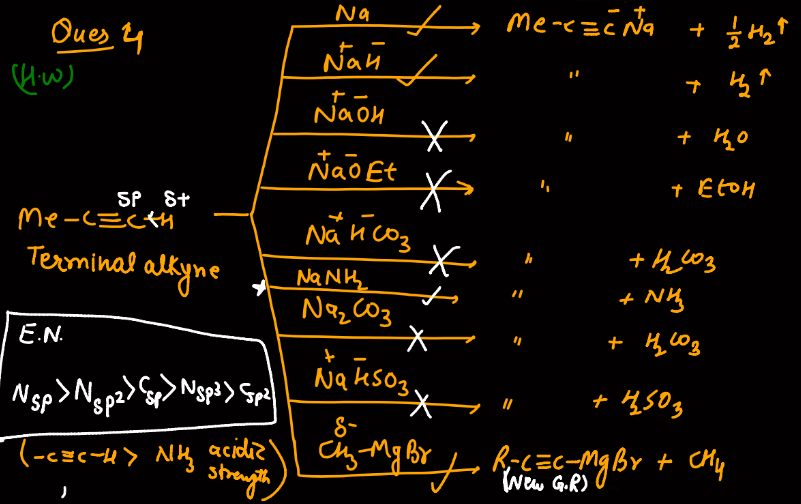 Ques 4
(H.W)
Me-C≡C-H
δp δ+
Terminal alkyne
Na Me-C≡C⁻ Na⁺ + ½ H₂↑
Na⁺H⁻ " + H₂↑
Na⁺OH⁻ " + H₂O
Na⁺O⁻Et " + EtOH
Na⁺HCO₃⁻ " + H₂CO₃
NaNH₂ " + NH₃
Na₂CO₃ " + H₂CO₃
Na⁺HSO₃⁻ " + H₂SO₃
δ-
CH₃-MgBr R-C≡C-MgBr + CH₄
(New G.R)
E.N.
Nsp > Nsp² > Csp > Nsp³ > Csp²
(-C≡C-H > NH₃ acidic strength)